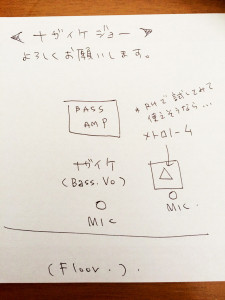 ≪ ナガイケジョー ≫
よろしくお願いします。
BASS
AMP
* RHで試してみて
使えそうなら...
メトロノーム
ナガイケ
(Bass.Vo)
MIC
MIC.
(Floor.).